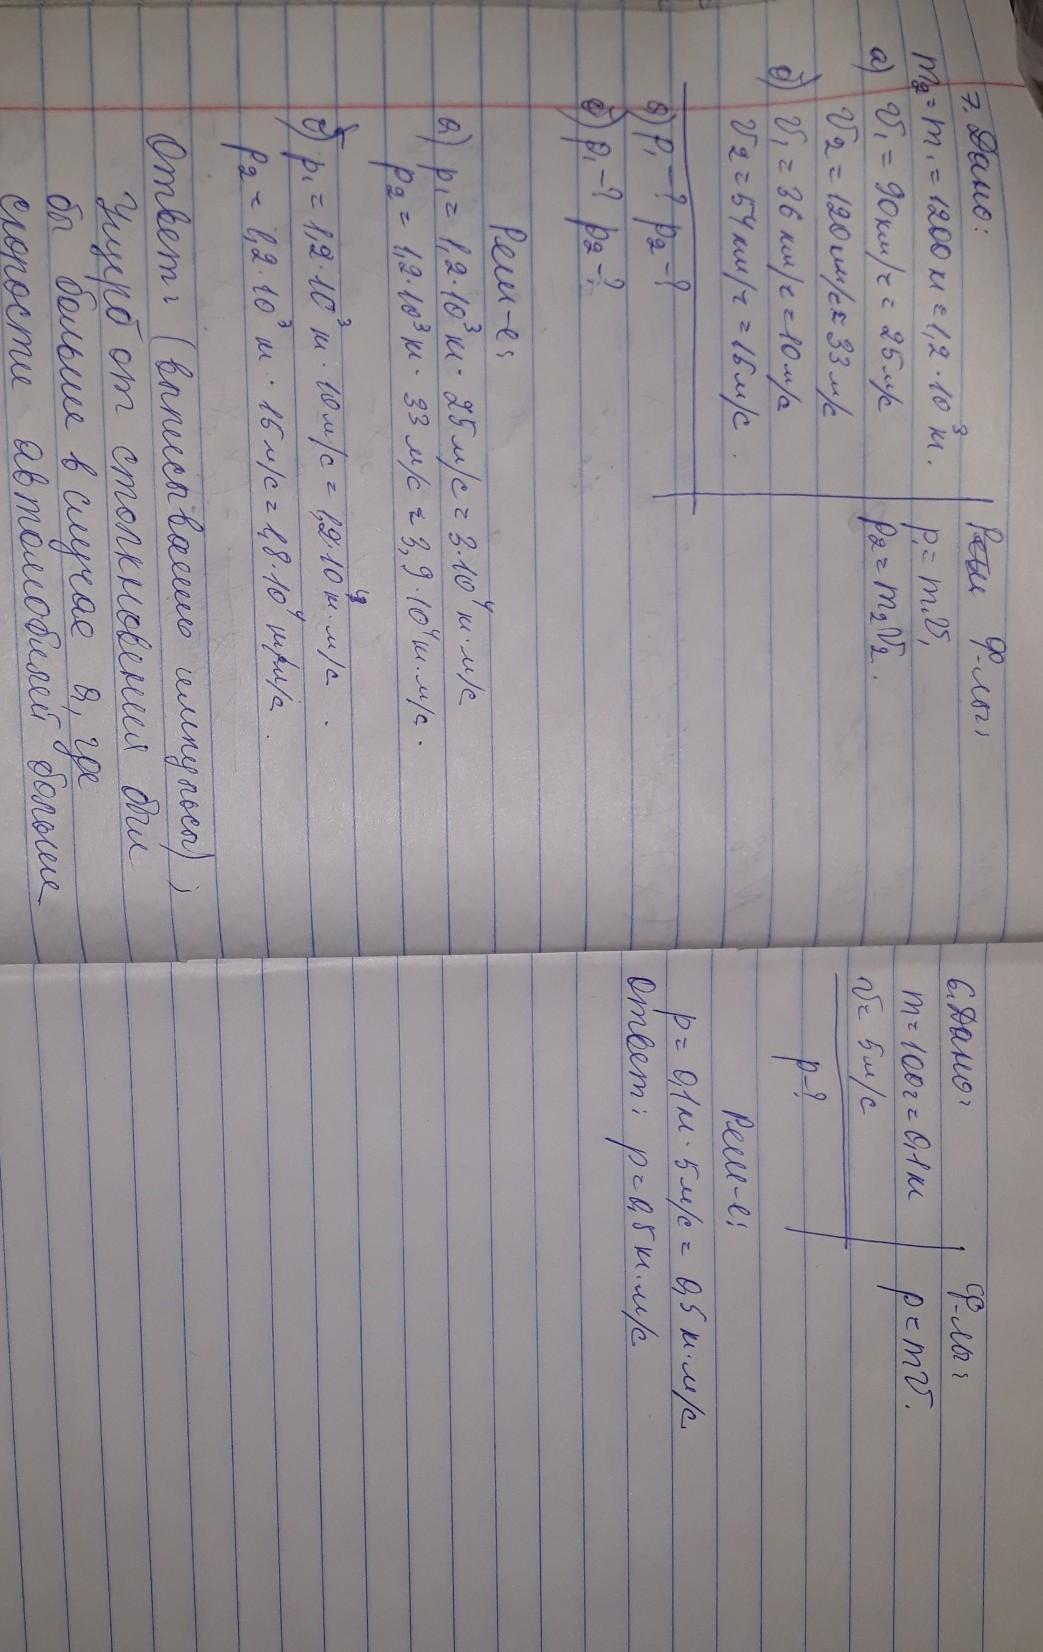 7. Дано:
m₂ = m₁ = 1200 кг = 1,2 · 10³ кг.
а) V₁ = 90 км/ч = 25 м/с
V₂ = 120 км/ч ≈ 33 м/с
б) V₁ = 36 км/ч = 10 м/с
V₂ = 54 км/ч = 15 м/с.
а) p₁ - ? p₂ - ?
б) p₁ - ? p₂ - ?
Ф-лы:
p₁ = m₁V₁
p₂ = m₂V₂.
Реш-е:
а) p₁ = 1,2 · 10³ кг · 25 м/с = 3 · 10⁴ кг · м/с
p₂ = 1,2 · 10³ кг · 33 м/с ≈ 3,9 · 10⁴ кг · м/с.
б) p₁ = 1,2 · 10³ кг · 10 м/с = 1,2 · 10⁴ кг · м/с.
p₂ = 1,2 · 10³ кг · 15 м/с = 1,8 · 10⁴ кг · м/с.
Ответ: (выписываешь импульсы);
Ущерб от столкновения был
бы больше в случае а, где
скорости автомобилей больше
6. Дано:
m = 100 г = 0,1 кг
V = 5 м/с
p - ?
Ф-лы:
p = mV.
Реш-е:
p = 0,1 кг · 5 м/с = 0,5 кг · м/с
Ответ: p = 0,5 кг · м/с